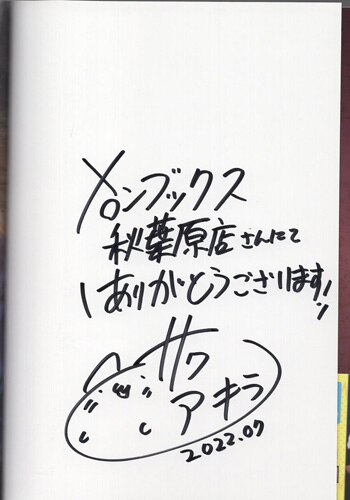 メロンブックス
秋葉原店さんにて
ありがとうございます!
サワ
アキラ
2022.07